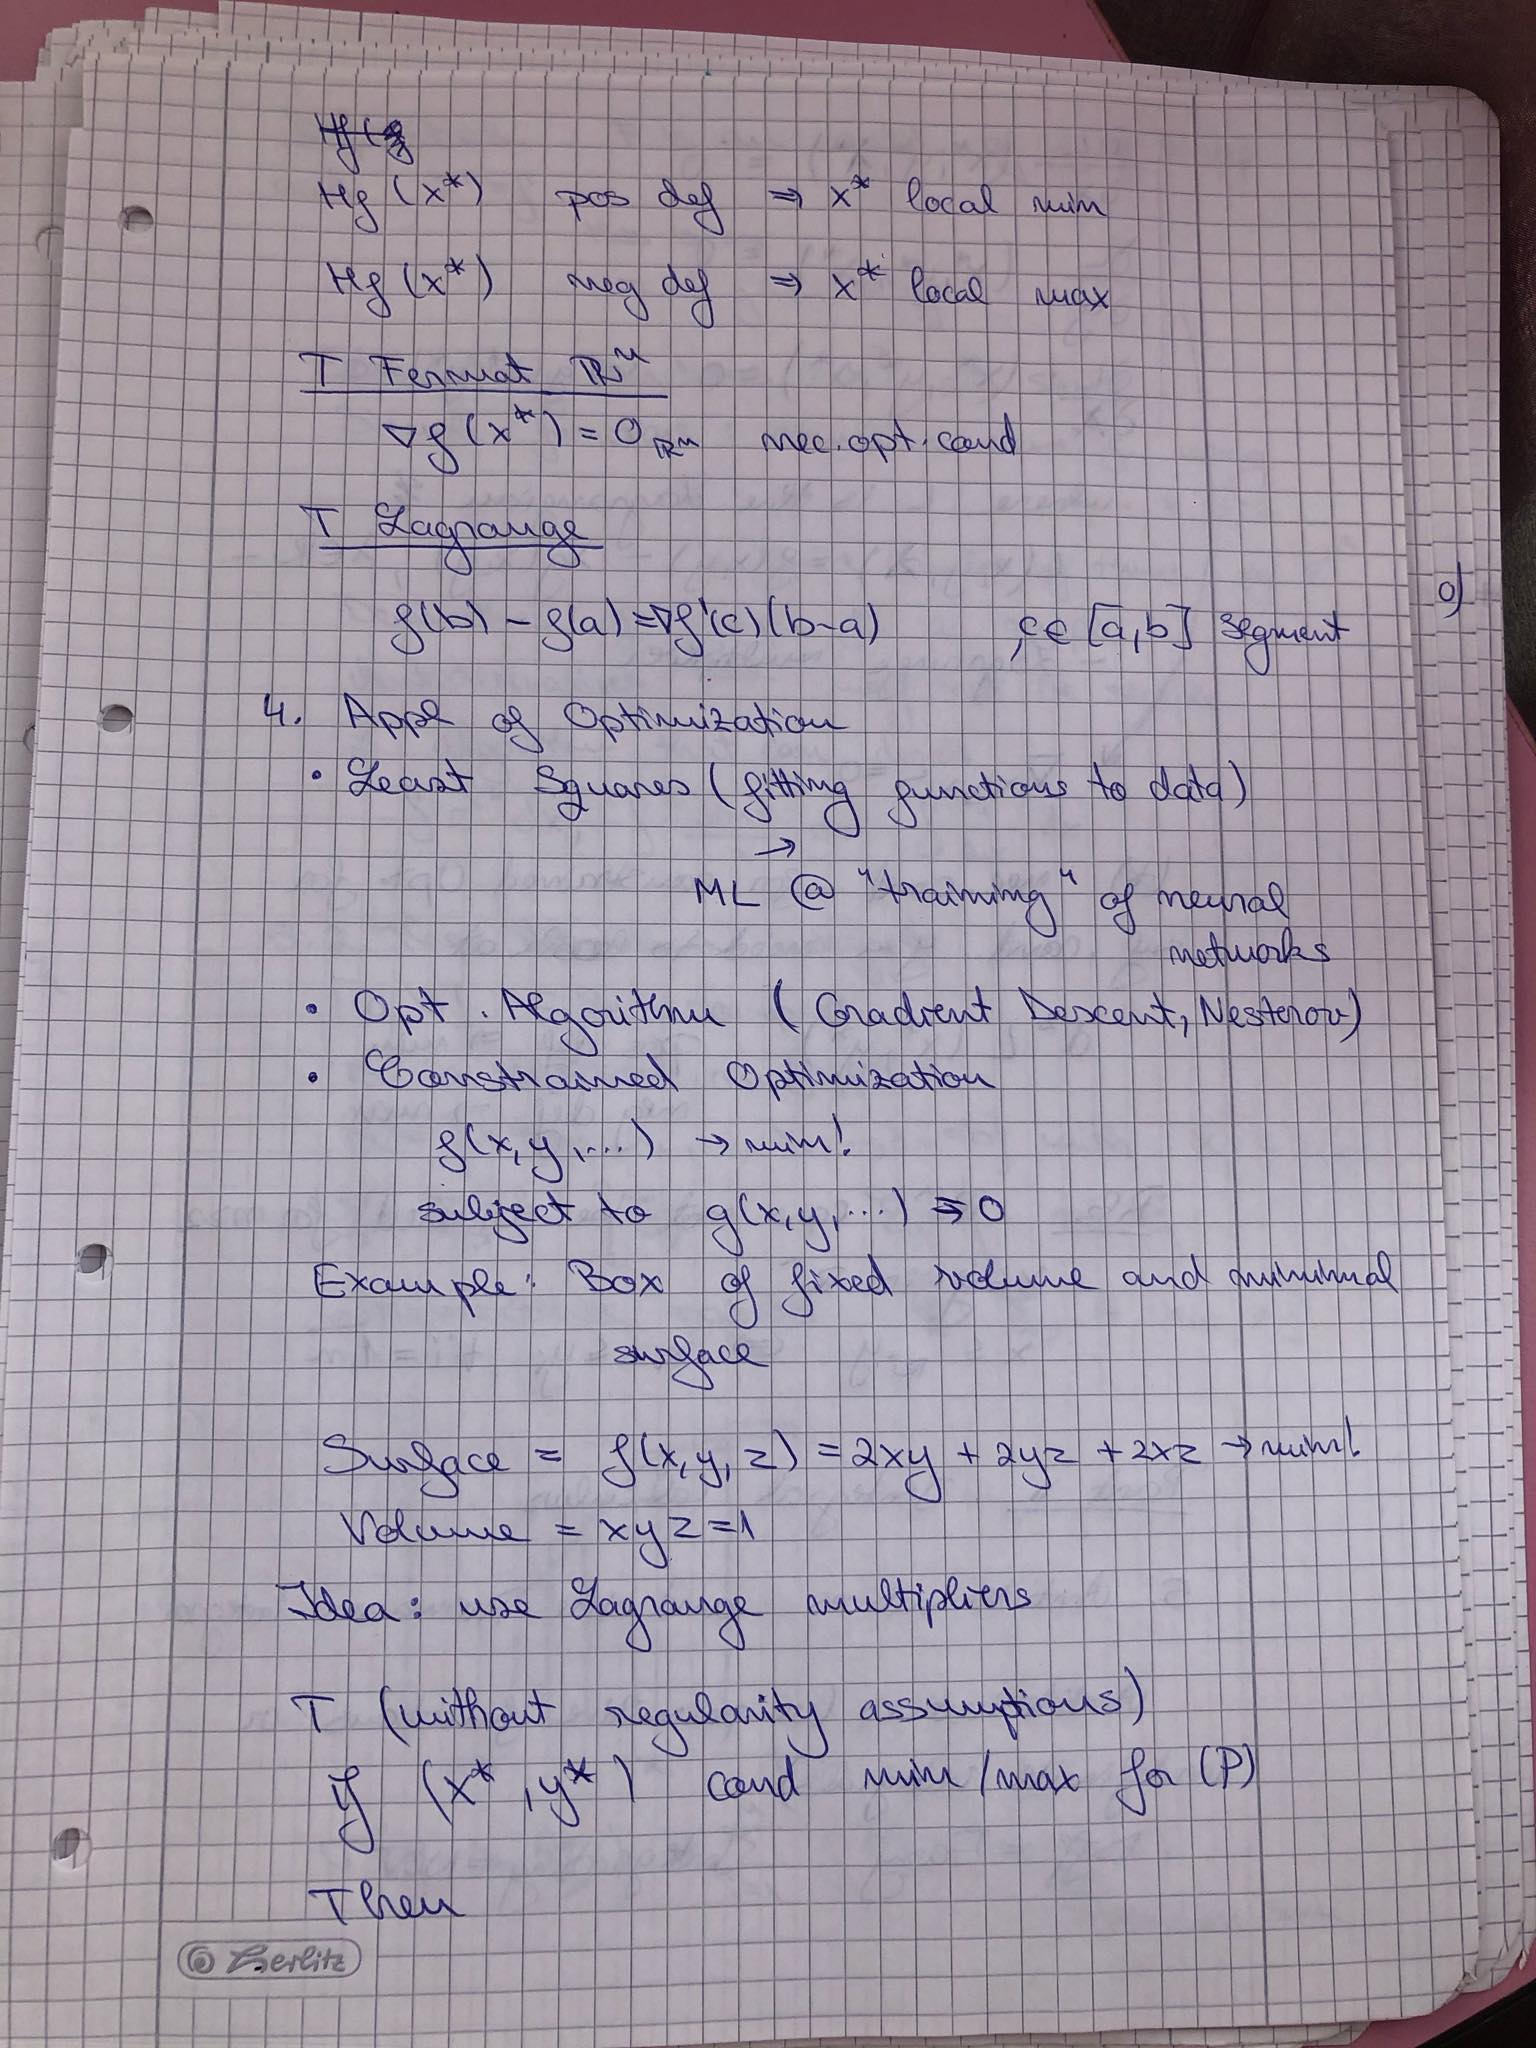 Hf(x*) pos def ⇒ x* local min
Hf(x*) neg def ⇒ x* local max
T Fermat ℝⁿ
∇f(x*) = 0ℝⁿ nec. opt. cond
T Lagrange
f(b) - f(a) = ∇f(c)(b-a) , c∈[a,b] segment
4. Appl of Optimization
• Least Squares (fitting functions to data)
→
ML @ "training" of neural
networks
• Opt. Algorithm (Gradient Descent, Nesterov)
• Constrained Optimization
f(x,y,...) → min!
subject to g(x,y,...) = 0
Example: Box of fixed volume and minimal
surface
Surface = f(x,y,z) = 2xy + 2yz + 2xz → min!
Volume = xyz = 1
Idea: use Lagrange multipliers
T (without regularity assumptions)
If (x*, y*) cond min/max for (P)
Then
Herlitz